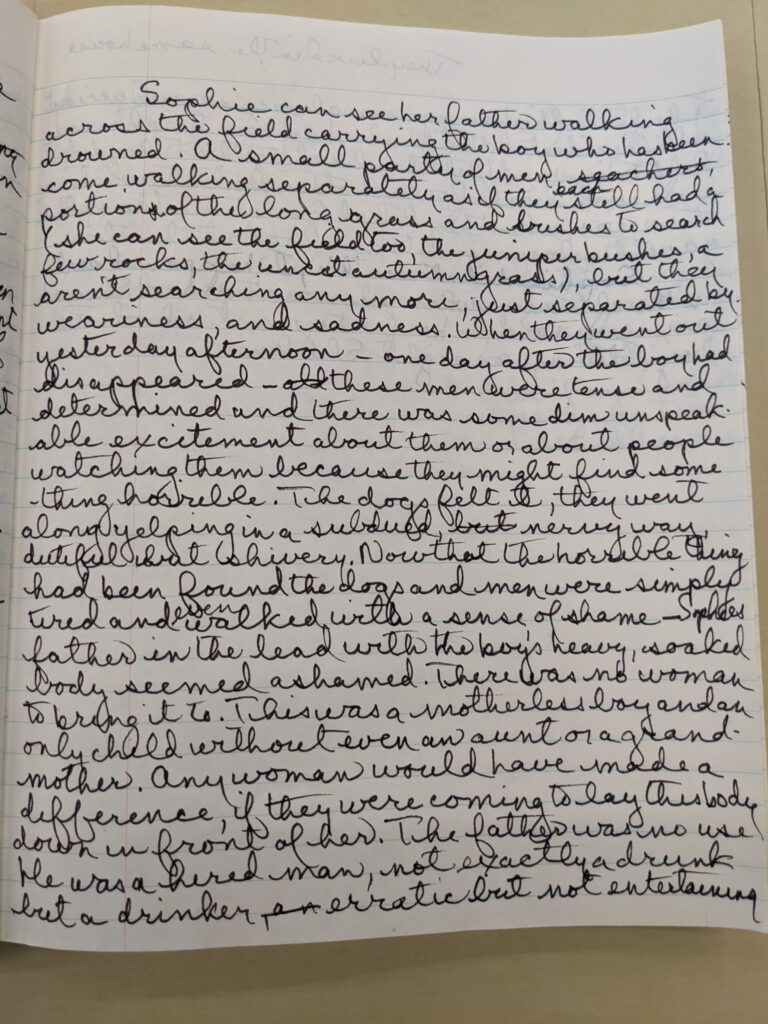 Sophie can see her father walking
across the field carrying the boy who has been
drowned. A small party of men, seachers,
come, walking separately as if they each still had a
portion of the long grass and bushes to search
(she can see the field too, the juniper bushes, a
few rocks, the uncut autumn grass), but they
aren't searching any more, just separated by
weariness, and sadness. When they went out
yesterday afternoon – one day after the boy had
disappeared – all these men were tense and
determined and there was some dim unspeak-
able excitement about them or about people
watching them because they might find some
-thing horrible. The dogs felt it, they went
along yelping in a subdued, but nervy way,
dutiful but shivery. Now that the horrible thing
had been found the dogs and men were simply
tired and even walked with a sense of shame – Sophie's
father in the lead with the boy's heavy, soaked
body seemed ashamed. There was no woman
to bring it to. This was a motherless boy and an
only child without even an aunt or a grand-
mother. Any woman would have made a
difference, if they were coming to lay this body
down in front of her. The father was no use
He was a hired man, not exactly a drunk
but a drinker, an erratic but not entertaining